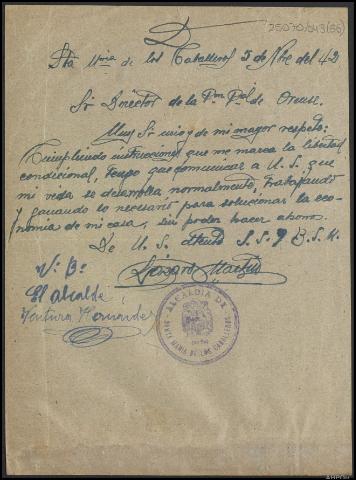 25070/043(56)
Sta Mria de los Caballeros 5 de Nbre del 42
Sr Director de la Pon Pal de Orense.
Muy Sr mio y de mi mayor respeto:
Cumpliendo instrucciones que me marca la libertad
condicional, tengo que comunicar a U. S. que
mi vida se desarrolla normalmente, trabajando
y ganando lo necesario para solucionar la eco-
nomia de mi casa, sin poder hacer ahorro.
De U. S. atento S. S. q B. S. M.
Lázaro
V. B.
El alcalde
Ventura Hernandez
ALCALDIA DE
SANTA MARIA DE LOS CABALLEROS